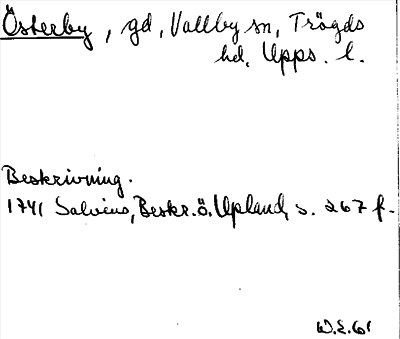 Österby, gd, Vallby sn, Trögds
hd, Upps. l.
Beskrivning.
1741 Salvius, Beskr. ö. Upland, s. 267 f.
W.E. 61